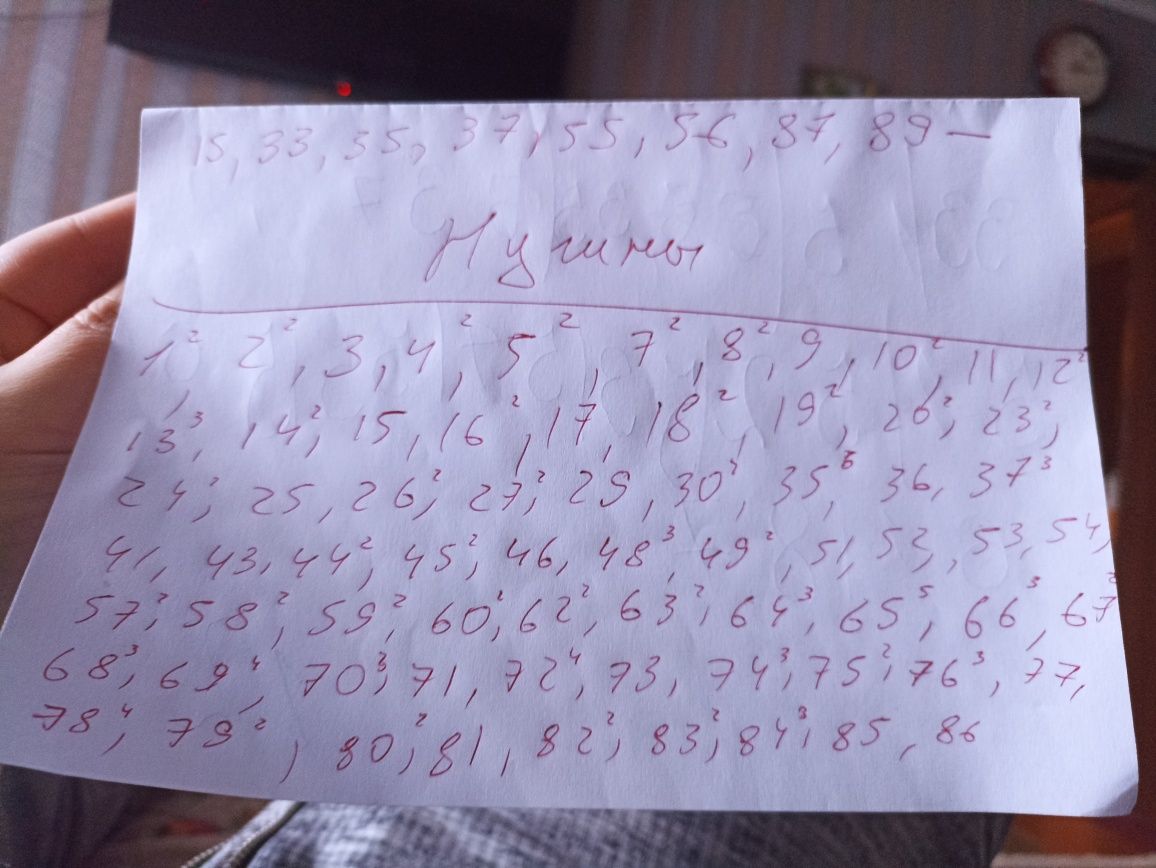 15, 33, 35, 37, 55, 56, 87, 89 —
Нужны
1², 2², 3, 4², 5², 7², 8², 9, 10², 11, 12²
13³, 14², 15, 16², 17, 18², 19², 20², 23²,
24², 25, 26², 27², 29, 30², 35³, 36, 37³
41, 43, 44², 45², 46, 48³, 49², 51, 53, 53, 54,
57², 58², 59², 60², 62², 63², 64³, 65⁵, 66³, 67²
68³, 69⁴, 70³, 71, 72⁴, 73, 74³, 75², 76³, 77,
78⁴, 79², 80², 81, 82², 83², 84³, 85, 86